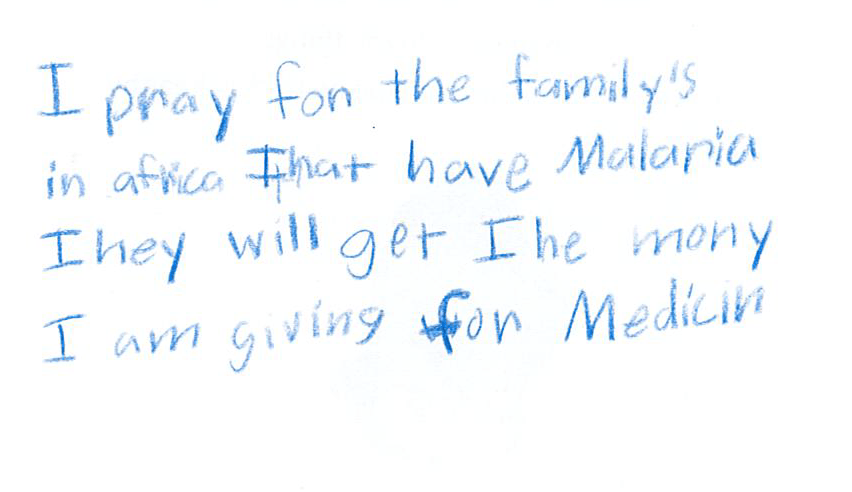 I pray for the family's
in africa that have Malaria
They will get The mony
I am giving for Medicin